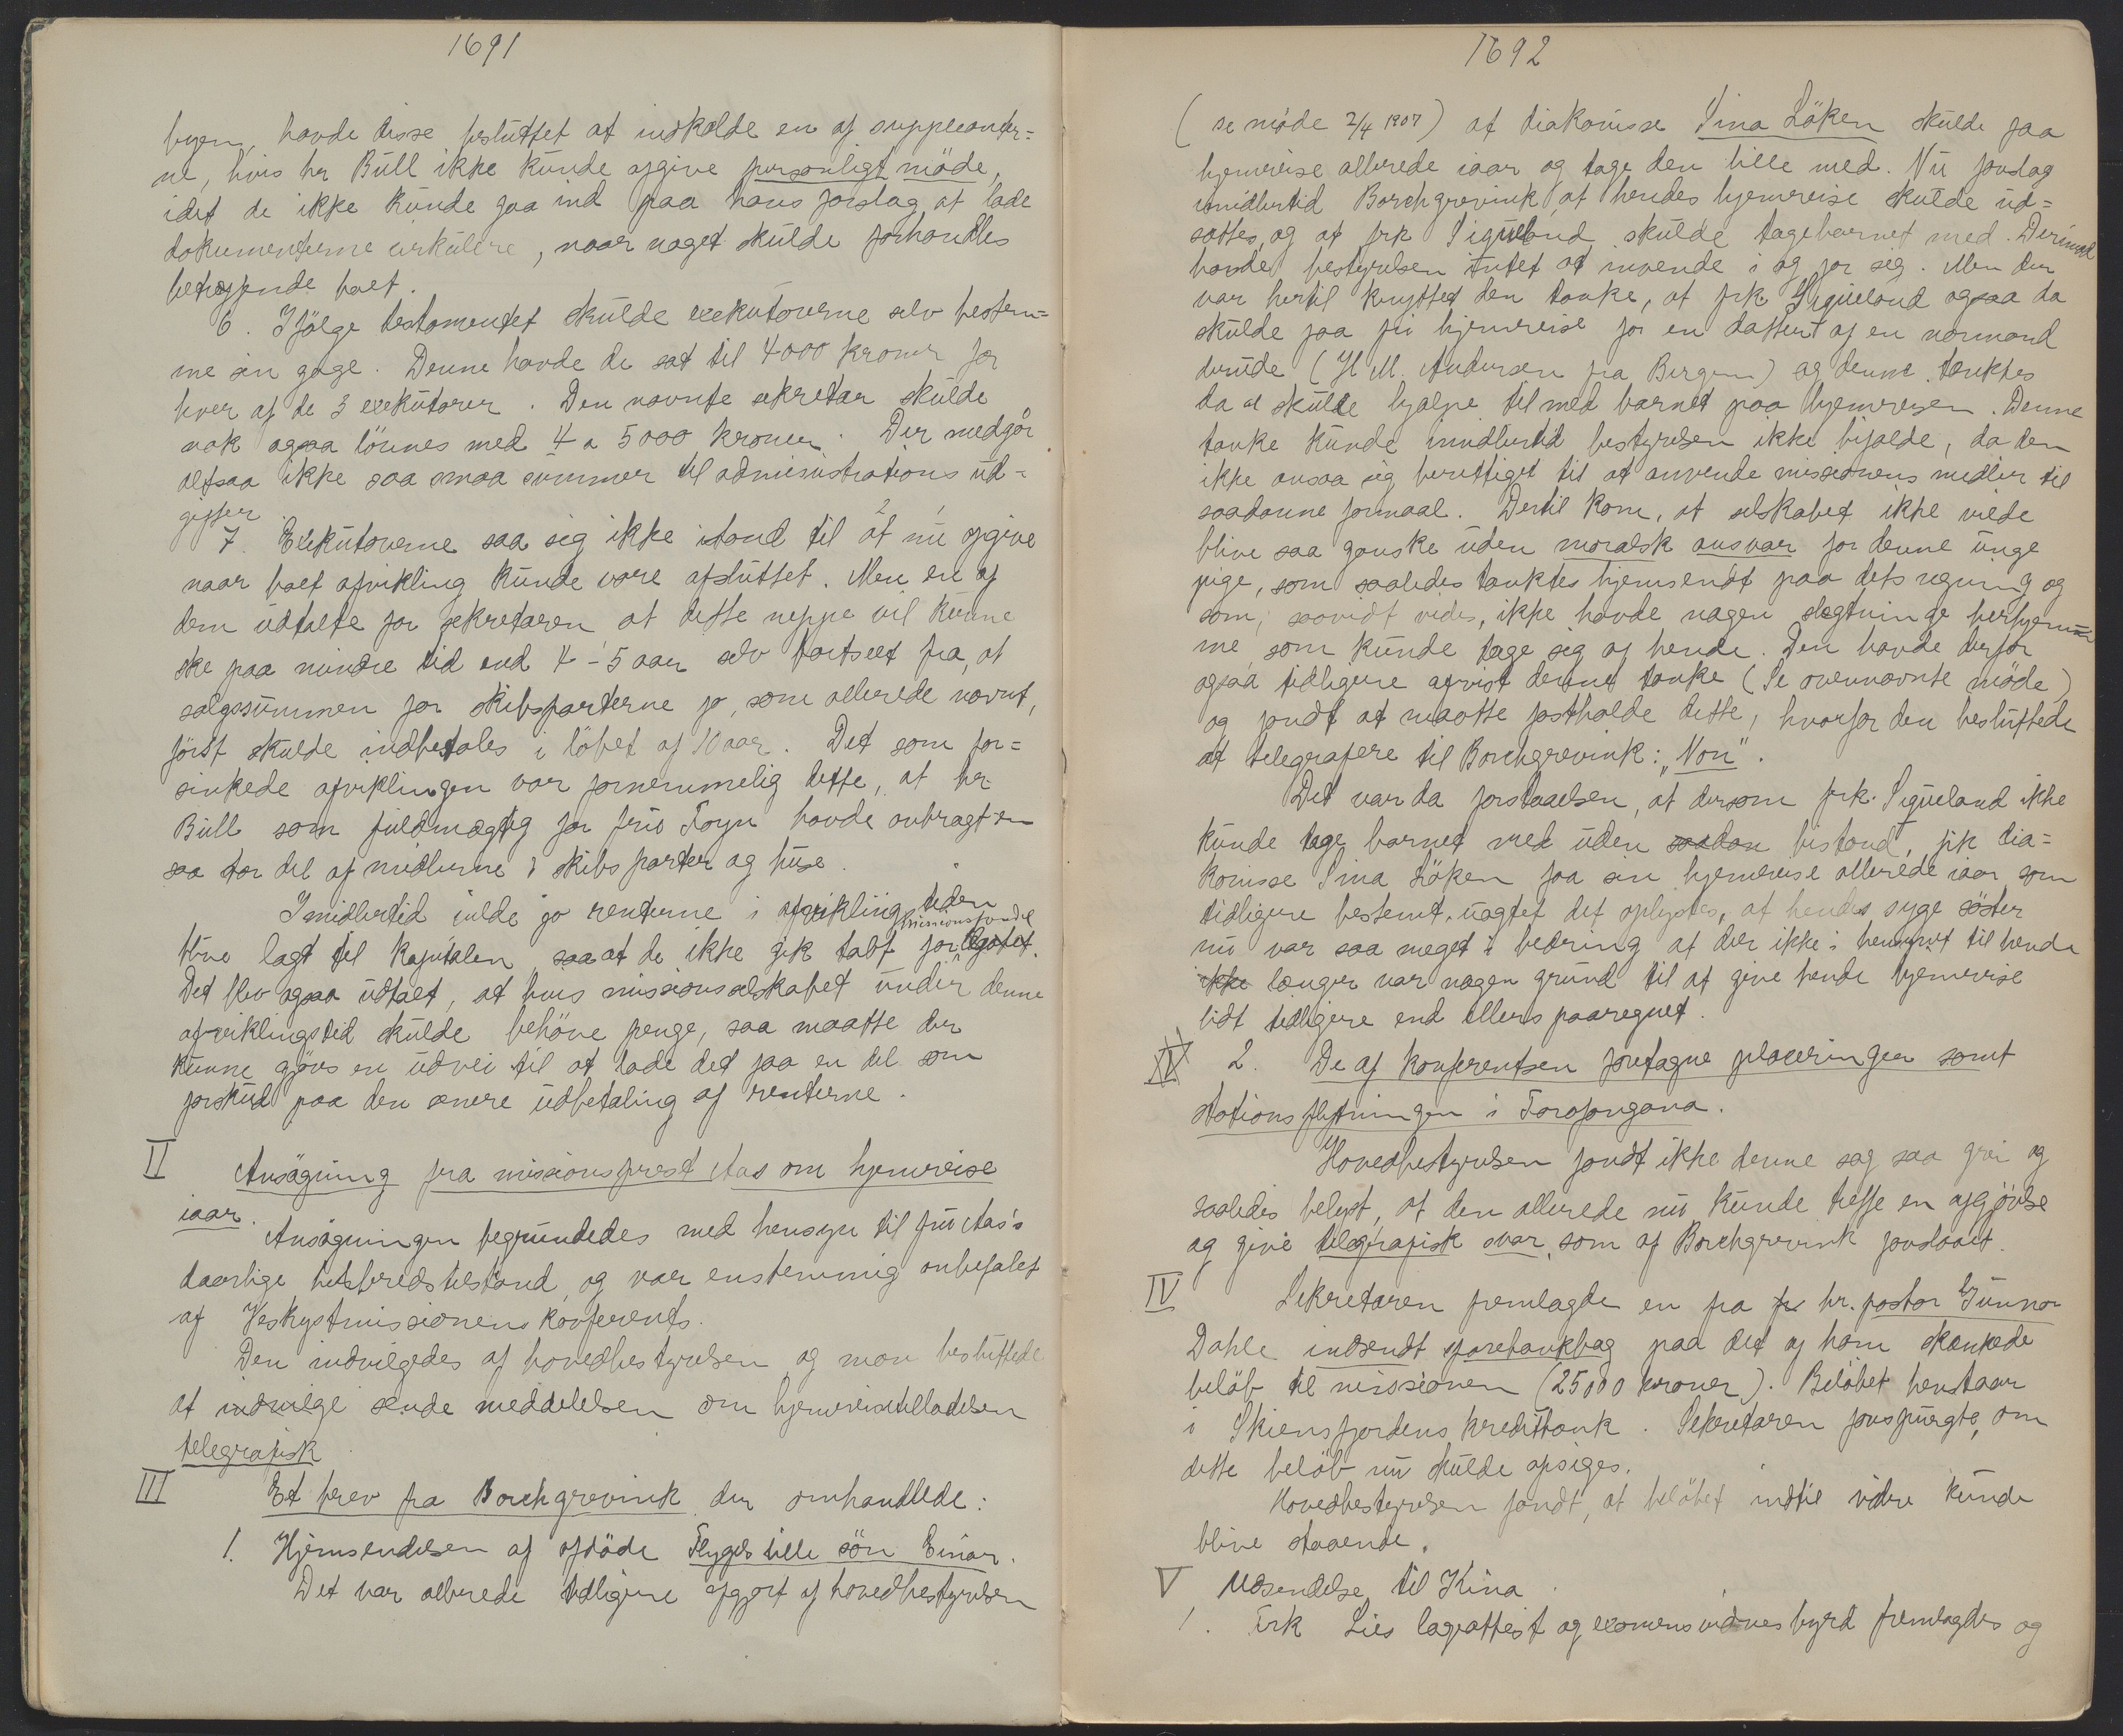 1691
byen, havde disse besluttet at indkalde en af suppleanter=
ne, hvis hr Bull ikke kunde afgive personligt möde,
idet de ikke kunde gaa ind paa hans forslag at lade
dokumenterne cirkulere, naar noget skulde forhandles
betræffende boet.
6. Ifölge testamentet skulde exekutorerne selv bestem=
me sin gage. Denne havde de sat til 4000 kroner for
hver af de 3 exekutorer. Den nævnte sekretær skulde
nok ogsaa lönnes med 4 a 5000 kroner. Der medgår
altsaa ikke saa smaa summer til administrations ud=
gifter.
7. Exekutorerne saa sig ikke istand til at nu opgive
naar boet afvikling kunde være afsluttet. Men en af
dem udtalte for sekretæren at dette neppe vil kunne
ske paa mindre tid end 4-5 aar selv bortseet fra, at
salgssummen for skibsparterne jo, som allerede nævnt,
först skulde indbetales i löbet af 10 aar. Det som for=
sinkede afviklingen var fornemmelig dette, at hr
Bull som fuldmægtig for fru Foyn havde anbragt en
saa stor del af midlerne i skibsparter og huse.
Imidlertid vilde jo renterne i afviklingstiden
blive lagt til kapitalen saa at de ikke gik tabt for missionsfondet legatet.
Det blev ogsaa udtalt, at hvis missionsselskabet under denne
afviklingstid skulde behöve penge, saa maatte der
kunne gjöres en udvei til at lade det faa en del som
forskud paa den senere udbetaling af renterne.
II Ansögning fra missionsprest Aas om hjemreise
iaar.
Ansögningen begrundedes med hensyn til fru Aas's
daarlige helsbredstilstand og var enstemmig anbefalet
af Vestkystmissionens konferents.
Den indvilgedes af hovedbestyrelsen og man besluttede
at indvilge sende meddelelsen om hjemreisetilladelsen
telegrafisk
III Et brev fra Borchgrevink der omhandlede:
1. Hjemsendelsen af afdöde Flygels lille sön Einar.
Det var allerede tidligere afgjort af hovedbestyrelsen
1692
(se möde 2/4 1907) at diakonisse Sina Löken skulde faa
hjemreise allerede iaar og tage den lille med. Nu foreslog
imidlertid Borchgrevink at hendes hjemreise skulde ud=
sættes, og at frk Sigueland skulde tage barnet med. Derimod
havde bestyrelsen intet at invende i og for seg. Men der
var hertil knyttet den tanke, at frk Sigueland ogsaa da
skulde faa fri hjemreise for en datter af en normand
dernede (H M. Andersen fra Bergen) og denne tænktes
da at skulle hjælpe til med barnet paa hjemreisen. Denne
tanke kunde imidlertid bestyrelsen ikke bifalde, da den
ikke ansaa sig berettiget til at anvende missionens midler til
saadanne formaal. Dertil kom, at selskabet ikke vilde
blive saa ganske uden moralsk ansvar for denne unge
pige, som saaledes tænktes hjemsendt paa dets regning og
som, saavidt vides, ikke havde nogen slægtninge herhjem
me, som kunde tage sig af hende. Den havde derfor
ogsaa tidligere afvist denne tanke (Se ovennævnte möde)
og fandt at maatte fastholde dette, hvorfor den besluttede
at telegrafere til Borchgrevink: "Non".
Det var da forstaaelsen, at dersom frk. Sigueland ikke
kunde tage barnet med uden saadan bistand, fik dia=
konisse Sina Löken faa sin hjemreise allerede iaar som
tidligere bestemt, uagtet det oplystes, at hendes syge söster
nu var saa meget i bedring at der ikke i henseende til hende
ikke længer var nogen grund til at give hende hjemreise
lidt tidligere end ellers paaregnet.
2. De af konferentsen foretagne placeringer samt
stationsflytningen i Farafangana.
Hovedbestyrelsen fandt ikke denne sag saa grei og
saaledes belyst, at den allerede nu kunde treffe en afgjörelse
og give telegrafisk svar, som af Borchgrevink foreslaaet.
IV Sekretæren fremlagde en fra fr hr. pastor Gunnar
Dahle indsendt sparebankbog paa det af ham skænkede
belöb til missionen (25000 kroner). Belöbet henstaar
i Skiensfjordens kreditbank. Sekretæren forespurgte, om
dette belöb nu skulde opsiges.
Hovedbestyrelsen fandt, at belöbet indtil videre kunde
blive staaende.
V Udsendelse til Kina.
1. Frk Lies lægeattest og examensvidnesbyrd fremlagdes og